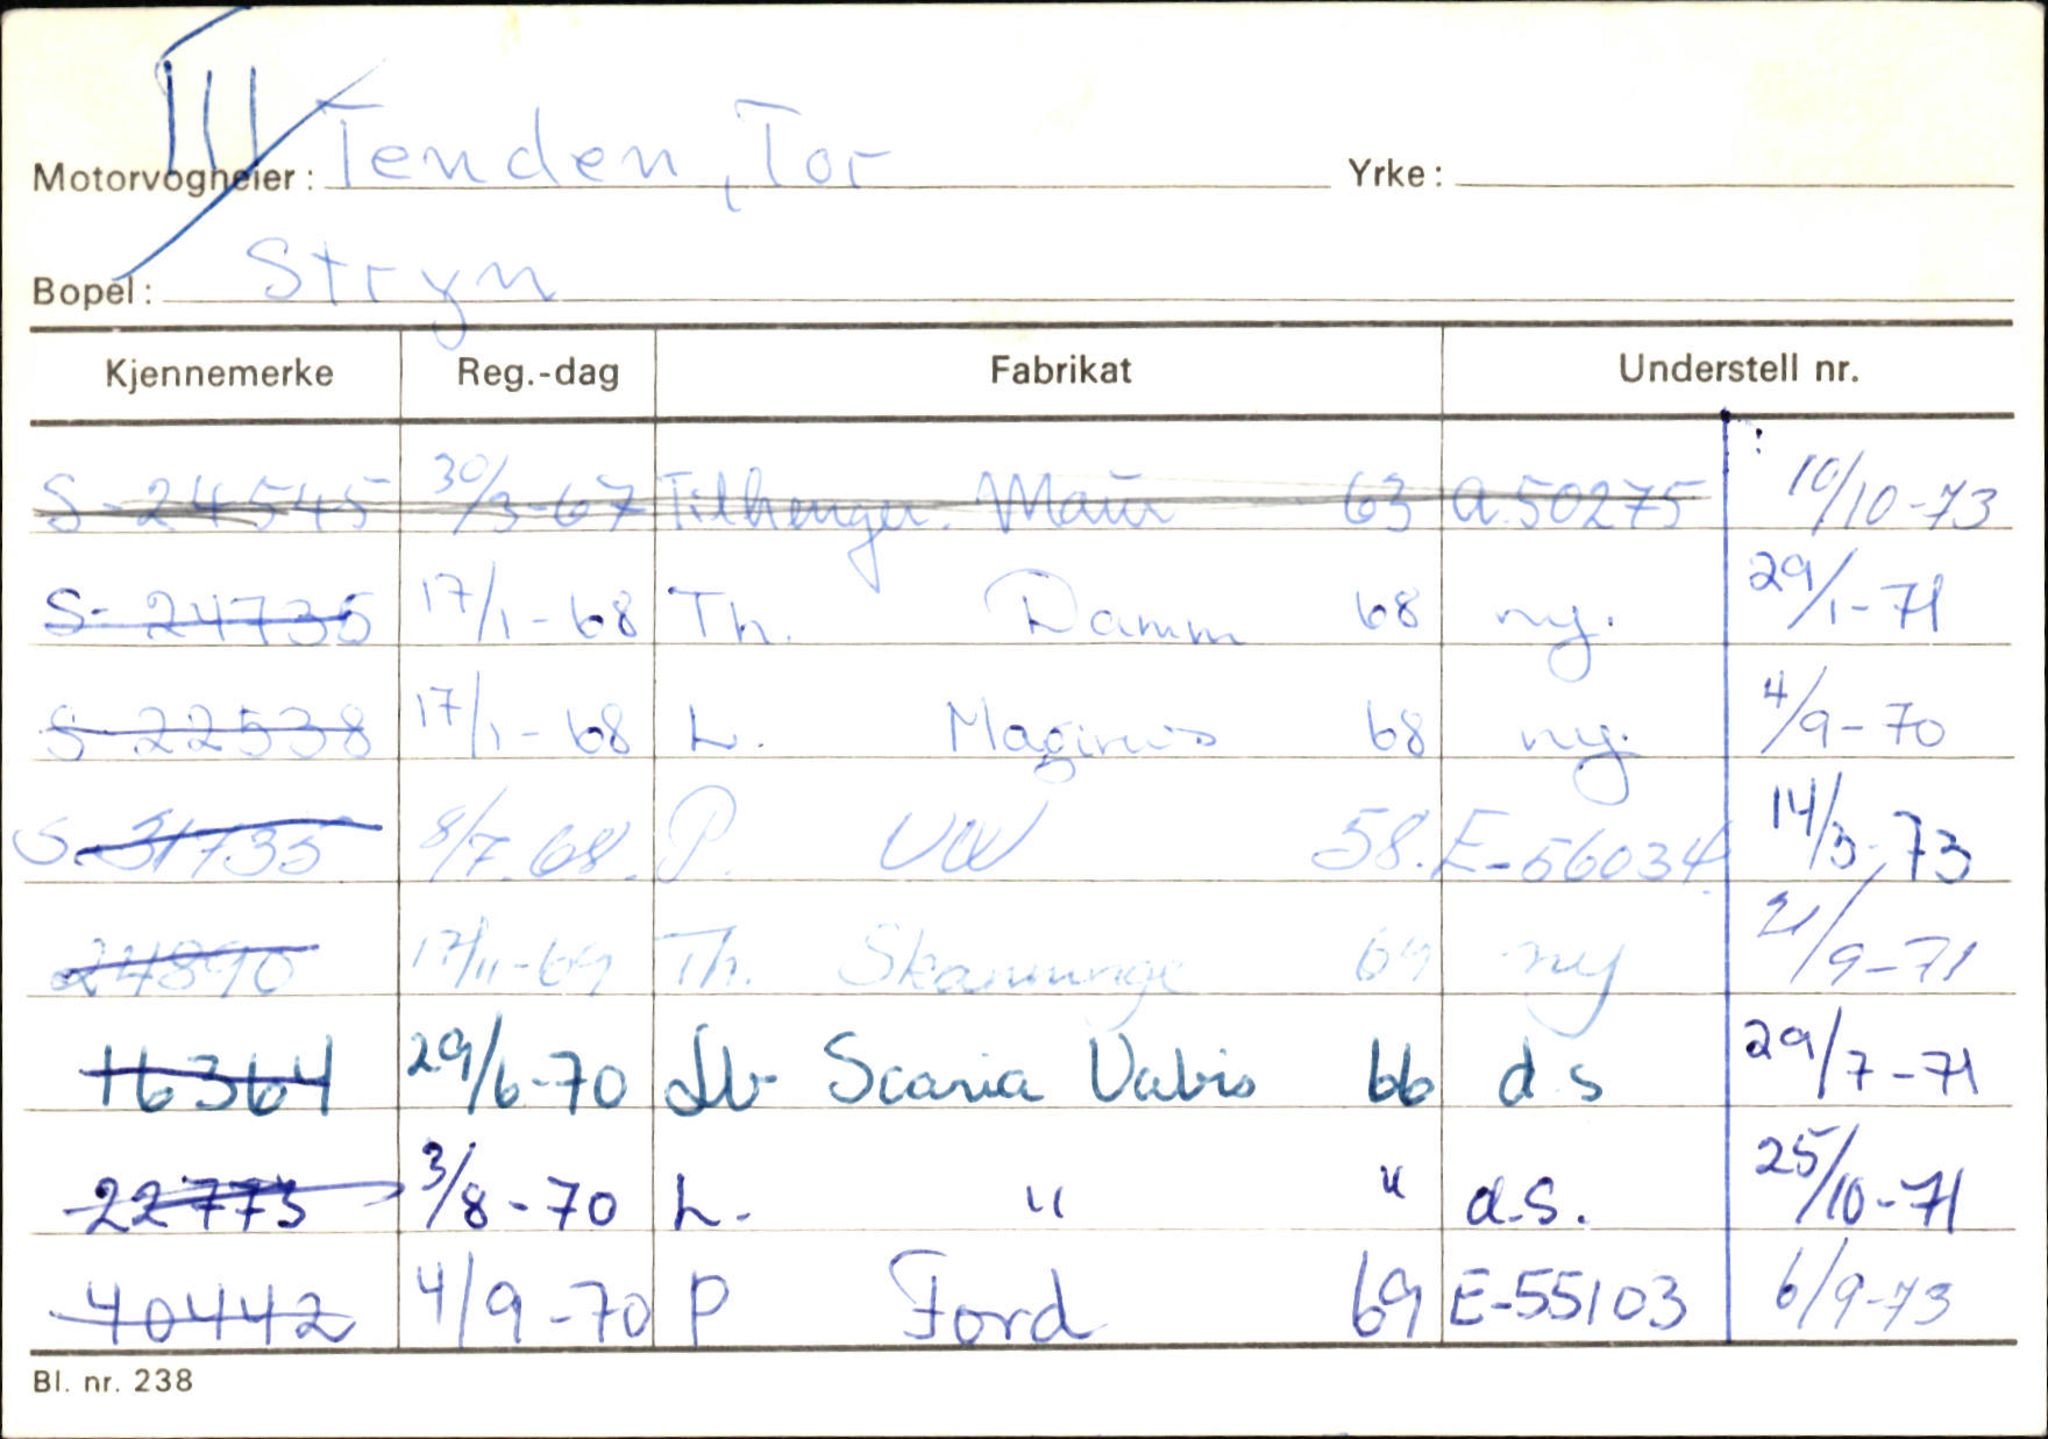 III
Motorvogneier: Tenden, Tor Yrke:
Bopel: Stryn
Kjennemerke Reg.-dag Fabrikat Understell nr.
S-24545 30/3-67 Tilhenger. Maur 63 A.50275 10/10-73
S-24735 17/1-68 Th. Damm 68 ny. 29/1-71
S-22538 17/1-68 L. Magirus 68 ny. 4/9-70
S.31735 8/7.68. P. VW 58. E-56034. 14/3-73
24890 17/11-69 Th. 69 ny 21/9-71
16364 29/6-70 Lb Scania Vabis 66 d.s 29/7-71
22773 3/8-70 L. " " d.s. 25/10-71
40442 4/9-70 P Ford 69 E-55103 6/9-73
Bl. nr. 238